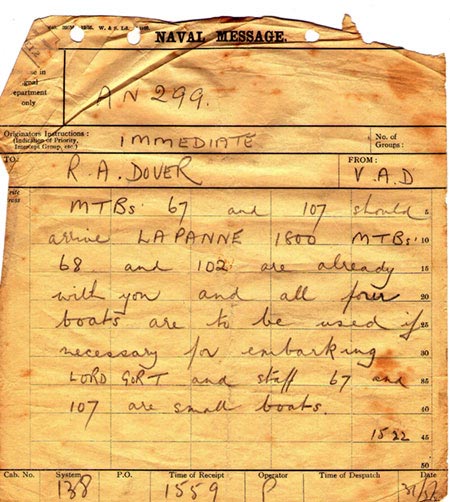 NAVAL MESSAGE.
use in
signal
epartment
only
AN 299.
Originators Instructions:
(Indication of Priority,
Intercept Group, etc.)
IMMEDIATE
No. of
Groups:
TO:
R.A. DOVER
FROM:
V.A.D
MTBs 67 and 107 should 5
arrive LAPANNE 1800 MTBs 10
68 and 102 are already 15
with you and all four 20
boats are to be used if 25
necessary for embarking 30
LORD GORT and staff 67 and 35
107 are small boats. 40
1522 45
50
Cab. No. System P.O. Time of Receipt Operator Time of Despatch Date
138 1559 P 31/5/